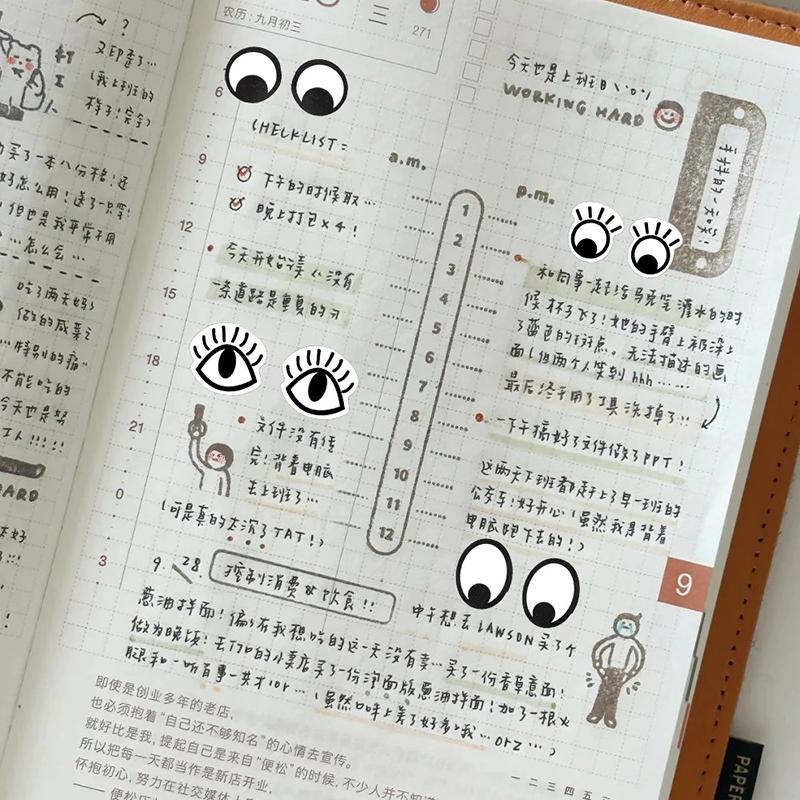 打
工
?
又印歪了…
(我上班的
样子:完全)
买了一本八分格!还
好怎么用!送了一只笔!
但也是我平常不用
…怎么会…
吃了两天好
做的咸菜
"特别的痛"
不能吃的
今天也是努
工人!!!!
ARD
农历:九月初三
三
271
6
9
12
15
18
21
0
3
CHECKLIST:
a.m.
下午的时候取…
晚上打包×4!
今天开始读《没有
一条道路是重复的》
文件没有传
完!背着电脑
去上班了…
(可是真的太沉了TAT!)
1
2
3
4
5
6
7
8
9
10
11
12
今天也是上班日
WORKING HARD
手抖的一天!
p.m.
和同事一起给马克笔灌水的时
候杯子飞了!她的手臂上被染上
了蓝色的斑点。无法描述的画
面(但两个人笑到hhh……
最后终于用了工具洗掉了!!
一下午搞好了文件做了PPT!
这两天下班都赶上了早一班的
公交车!好开心(虽然我是背着
电脑跑下去的!)
9
9. 28.
控制消费&饮食!!
中午想去LAWSON买了个
葱油拌面!偏偏在我想吃的这一天没有卖…买了一份香草意面!
做为晚饭!去了TO的小卖店买了一份泡面版葱油拌面!加了一根火
腿和一听百事一共才10r…(虽然口味上差了好多我…orz…)
即使是创业多年的老店,
也必须抱着"自己还不够知名"的心情去宣传。
就好比是我,提起自己是来自"便松"的时候,不少人并不知道
所以把每一天都当作是新店开业,
怀抱初心,努力在社交媒体上
—— 便松
一 二 三 四 五
PAPER